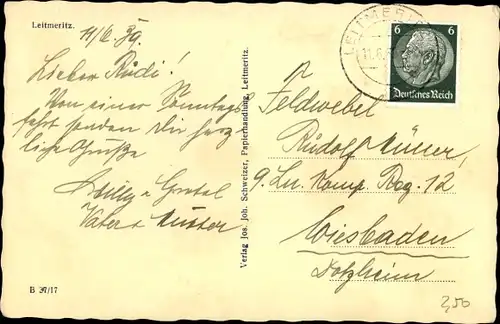 Leitmeritz.
11/6.39.
Lieber Rudi!
Von einer Sonntags
fahrt senden Dir herz
liche Grüße
Willy u. Gretel
Vater u. Mutter
B 37/17
Verlag Jos. Joh. Schweizer, Papierhandlung, Leitmeritz.
LEITMER
11.6.
6 6
Deutsches Reich
Feldwebel
Rudolf
9. Ln. Komp. Reg. 12
Wiesbaden
Dotzheim
2,50